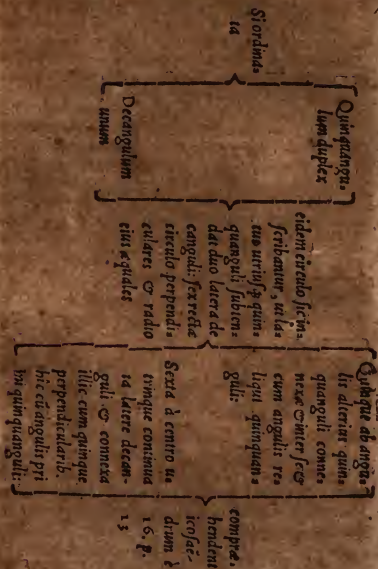 Si ordina=
ta
Quinquangu=
lum duplex
Decangulum
unum
eidem circulo ſic in=
ſcribantur, ut la=
tus utriuſq; quin=
quanguli ſubten=
dat duo latera de
canguli: ſex rectæ
circulo perpendi=
culares & radio
eius æquales
Quinque ab angu=
lis alterius quin=
quanguli conne=
xæ & inter ſe &
cum angulis re=
liqui quinquan=
guli:
Sexta à centro u=
trinque continua
ta latere decan=
guli & connexa
illic cum quinque
perpendicularib.
hic cũ angulis pri
mi quinquanguli:
compræ=
hendent
icoſaë=
drum è
16. p.
13